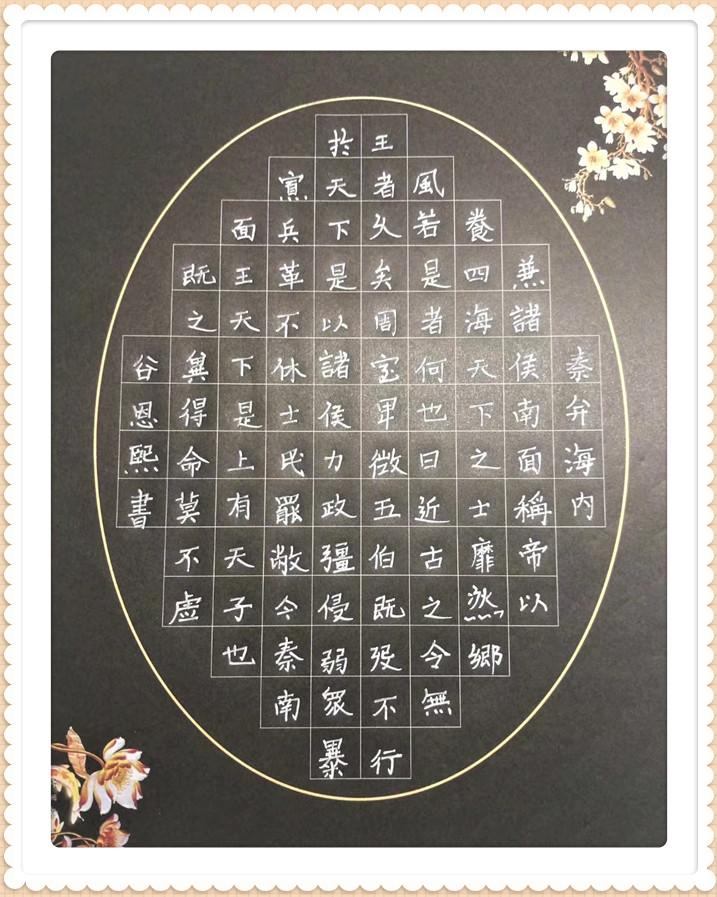 秦弁海内
兼諸侯南面稱帝以
養四海天下之士靡然郷
風若是者何也曰近古之令無
王者久矣周室卑微五伯既歿不行
扵天下是以諸侯力政彊侵弱衆暴
寡兵革不休士民罷敝今秦南
面王天下是上有天子也
既之冀得命莫不虛
谷恩熙書